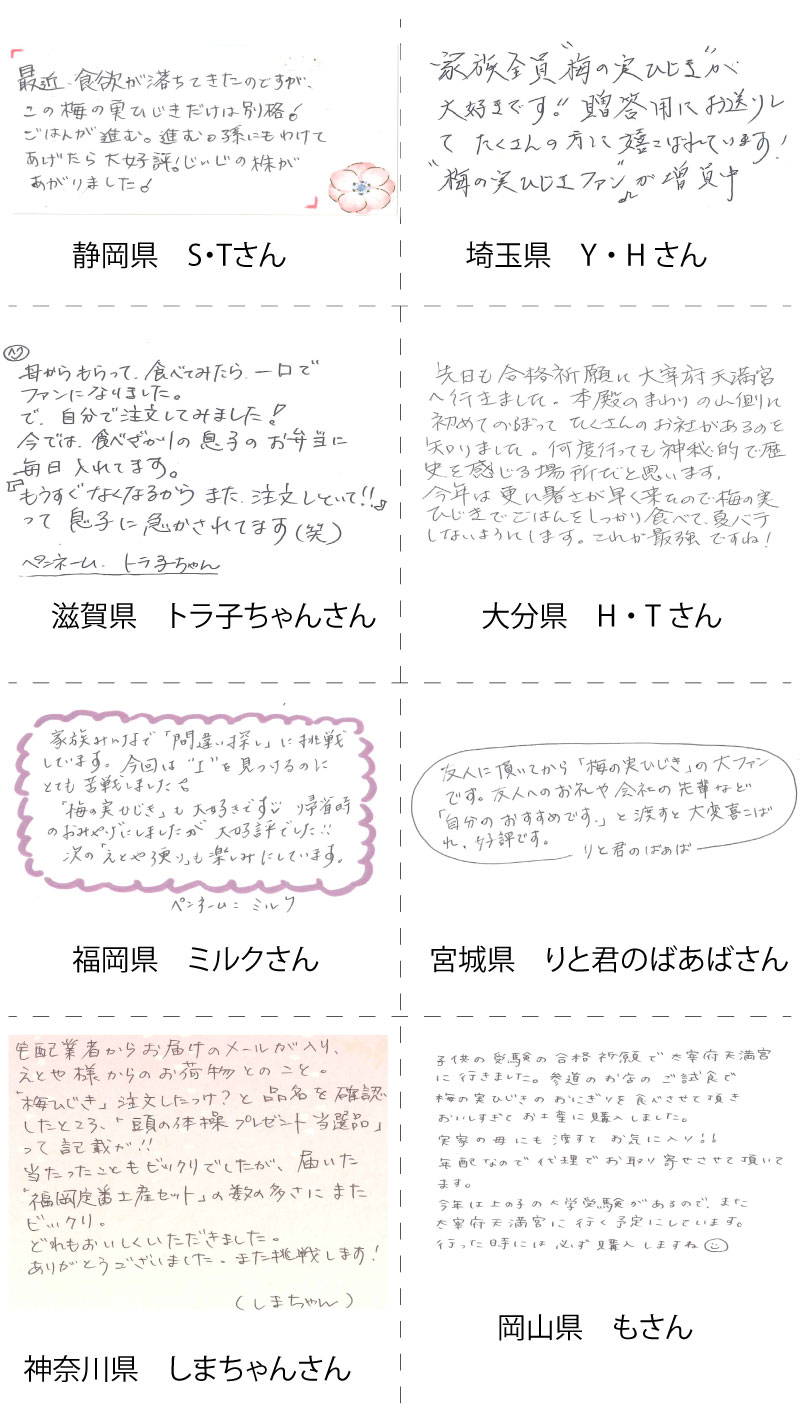 最近、食欲が落ちてきたのですが、
この梅の実ひじきだけは別格!
ごはんが進む。進む。孫にもわけて
あげたら大好評!じぃじの株が
あがりました!
静岡県 S・Tさん
家族全員"梅の実ひじき"が
大好きです!! 贈答用にお送りし
て たくさんの方に喜こばれています!
"梅の実ひじきファン"♪が増員中
埼玉県 Y・Hさん
母からもらって、食べてみたら、一口で
ファンになりました。
で、自分で注文してみました!
今では、食べざかりの息子のお弁当に
毎日入れてます。
『もうすぐなくなるから また、注文しといて!!』
って 息子に急かされてます(笑)
ペンネーム、トラ子ちゃん
滋賀県 トラ子ちゃんさん
先日も合格祈願に大宰府天満宮
へ行きました。本殿のまわりの山側に
初めてのぼって たくさんのお社があるのを
知りました。何度行っても神秘的で歴
史を感じる場所だと思います。
今年は更に暑さが早く来たので梅の実
ひじきでごはんをしっかり食べて、夏バテ
しないようにします。これが最強ですね!
大分県 H・Tさん
家族みんなで「間違い探し」に挑戦
しています。今回は"I"を見つけるのに
とても苦戦しました
「梅の実ひじき」も大好きです 帰省時
のおみやげにしましたが 大好評でした!!
次の「えとや便り」も楽しみにしています。
ペンネーム:ミルク
福岡県 ミルクさん
友人に頂いてから「梅の実ひじき」の大ファン
です。友人へのお礼や会社の先輩など
「自分のおすすめです。」と渡すと大変喜こば
れ、好評です。
りと君のばぁば
宮城県 りと君のばあばさん
宅配業者からお届けのメールが入り、
えとや様からのお荷物とのこと。
「梅ひじき」注文したっけ?と品名を確認
したところ、「頭の体操プレゼント当選品」
って記載が!!
当たったこともビックリでしたが、届いた
「福岡定番土産セット」の数の多さにまた
ビックリ。
どれもおいしくいただきました。
ありがとうございました。また挑戦します!
(しまちゃん)
神奈川県 しまちゃんさん
子供の受験の合格祈願で太宰府天満宮
に行きました。参道のお店のご試食で
梅の実ひじきのおにぎりを食べさせて頂き
おいしすぎてお土産に購入しました。
実家の母にも渡すとお気に入り!!
年配なので代理でお取り寄せさせて頂いて
ます。
今年は上の子の大学受験があるので、また
太宰府天満宮に行く予定にしています。
行った時には必ず購入しますね
岡山県 もさん